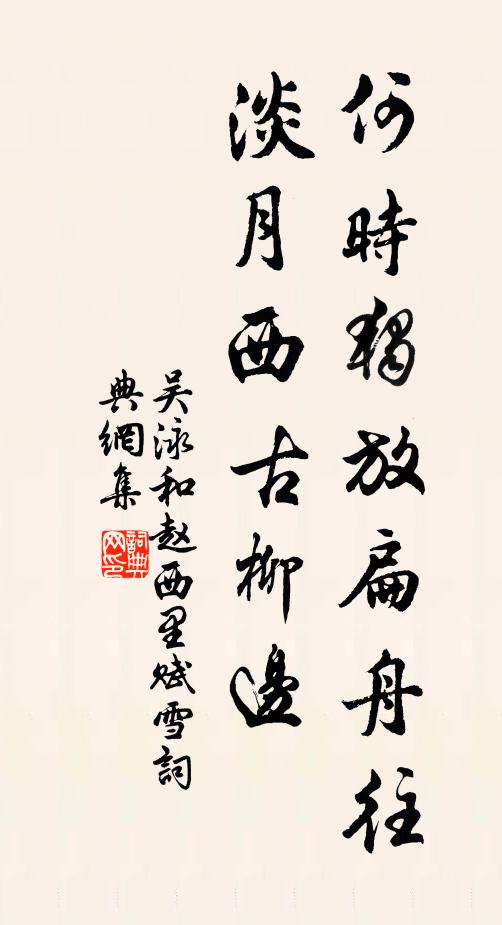 何時獨放扁舟往
淡月西古柳邊
吴泳和赵西里赋雪詞
典網集
詞典網印